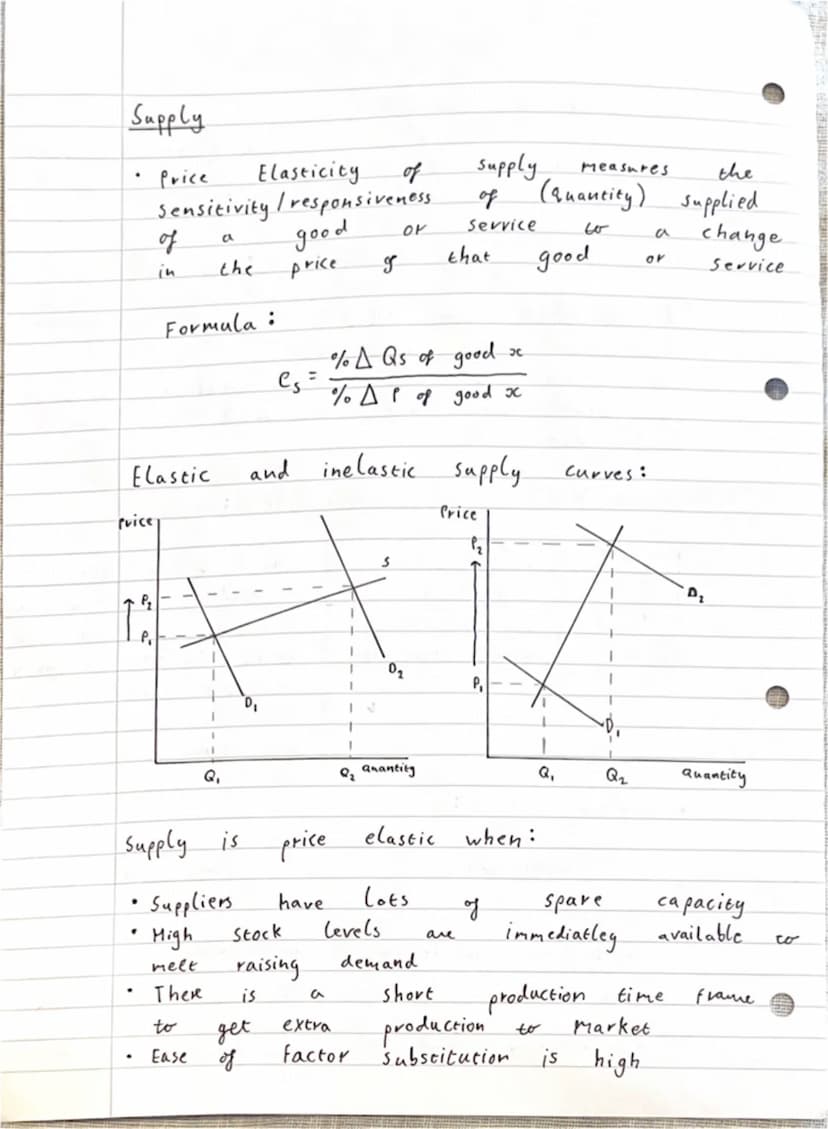 Supply
• Price Elasticity of supply measures the
sensitivity/responsiveness of (Quantity) supplied
of a good or service to a change
in the price of that good or service
Formula:
es = %Δ Qs of good x
%Δ P of good x
Elastic and inelastic supply curves:
Price
S
P2
P1
D2
D1
Q1 Q2 Quantity
Price
P2
D2
P1
D1
Q1 Q2 Quantity
Supply is price elastic when:
• Suppliers have lots of spare capacity
• High stock levels are immediatley available to
meet raising demand
• There is a short production time frame
to get extra production to market
• Ease of factor substitution is high